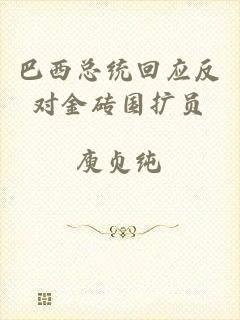 巴西总统回应反
对金砖国扩员
庾贞纯